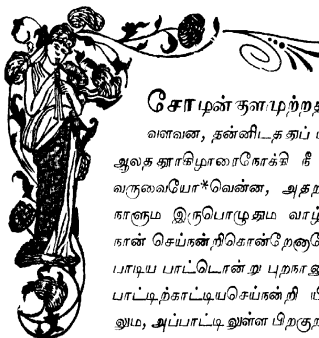 சோழன் குளமுற்றத்
வளவன், தன்னிடத்துப்
ஆலத்தூர்கிழாரைநோக்கி நீ
வருவையோ*வென்ன, அதற
நாளும் இருபொழுதும் வாழ்
நான் செய்ந்நன்றிகொன்றேனா
பாடிய பாட்டொன்று புறநானூ
பாட்டிற்காட்டியசெய்ந்நன்றி யி
லும், அப்பாட்டிலுள்ள பிறகுற